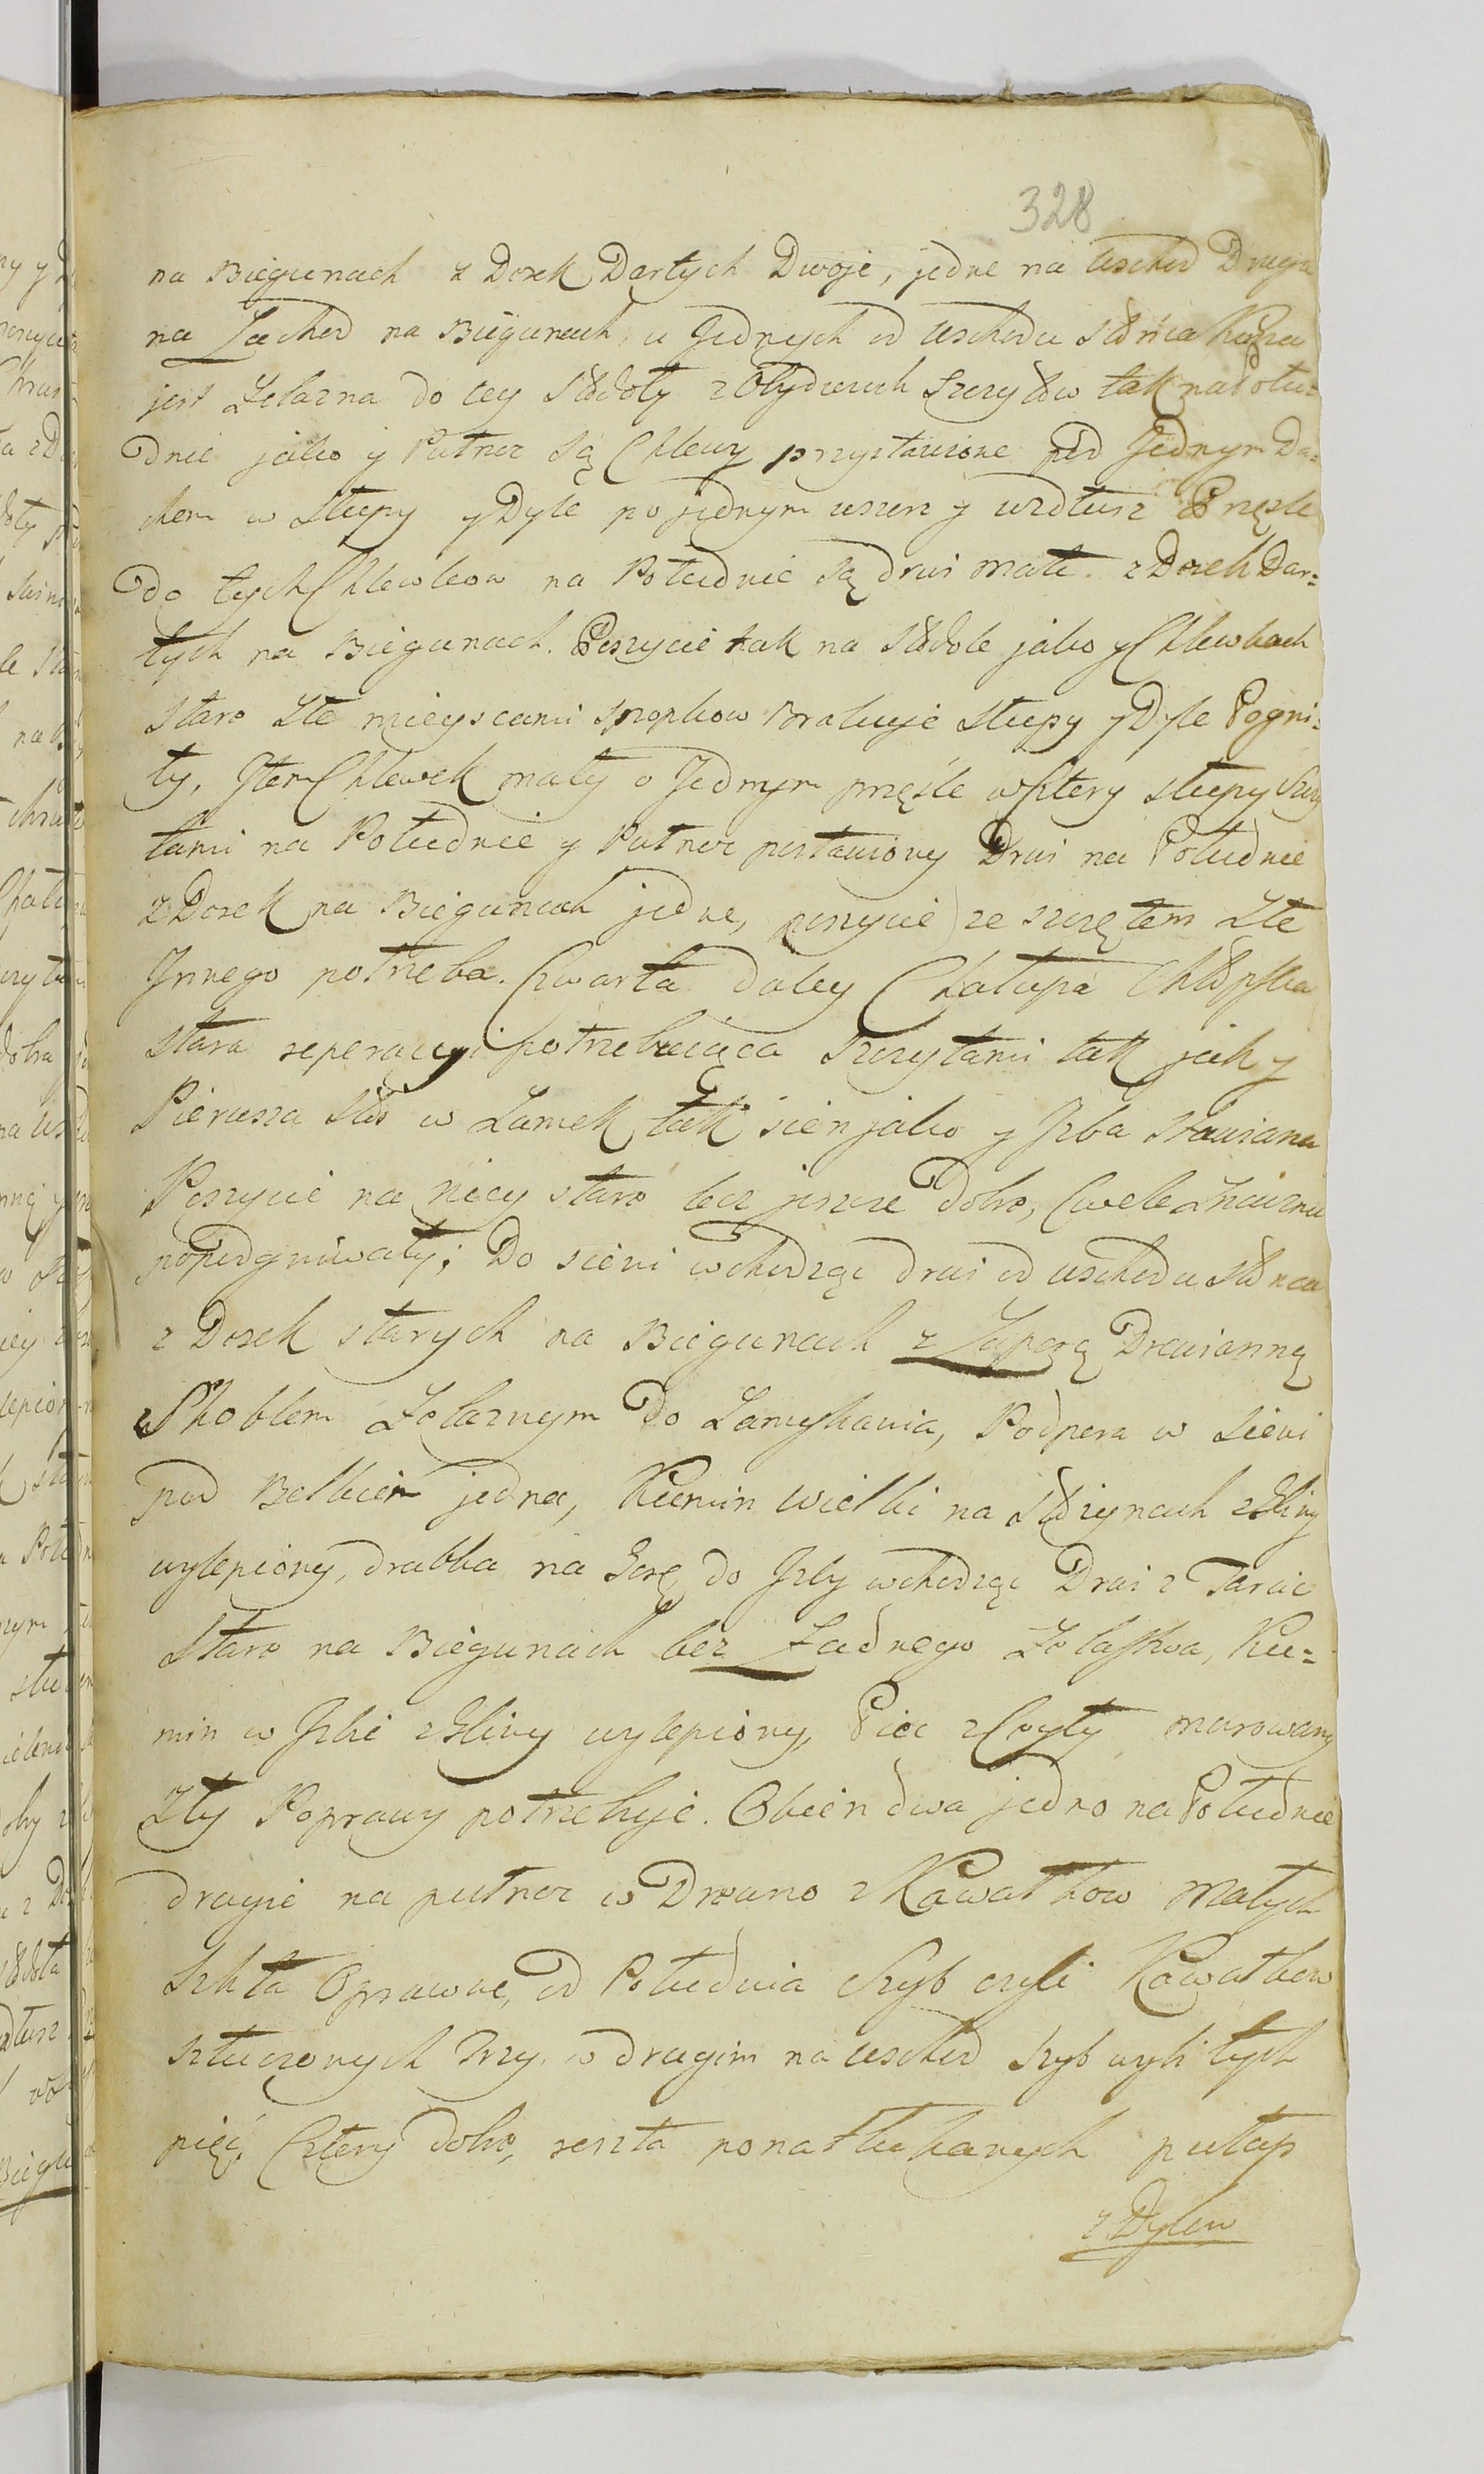 328
na Biegunach z Dosek Dartych Dwoje, jedne na wschod Drugie
na Zachod na Biegunach, u Jednych od wschodu Słońca Kuna
jest Zelazna do tey Stodoły z obydwuch Szczytow tak na Połu=
dnie jako y Putnoc są Chlewy przystawione pod Jednym Da=
chem w Słupy y Dyle po jednym wszerz y wzdłusz Przęśle
do tych Chlewkow na Południe są drwi małe z Dosek Dar=
tych na Biegunach. Poszycie tak na Stodole jako y Chlewkach
staro złe mieyscami snopkow Brakuje słupy y Dyle Pogni=
ły, Item Chlewek mały o Jednym przęśle w cztery słupy Szczy
tami na Południe y Putnoc postawiony Drwi na Południe
z Dosek na Biegunach jedne, poszycie ze szczętem złe
Innego potrzeba. Czwarta daley Chałupa Chłopska
stara reperacyi potrzebuiąca Szczytami tak jak y
Pierwsza stoi w Zamek tak sien jako y Izba stawiana
Poszycie na niey staro lecz jeszcze dobre, Cwele znacznie
popodgniwały; Do sieni wchodząc drwi od wschodu Słońca
z Dosek starych na Biegunach z Zaporą Drewianną
z Skoblem Zelaznym do Zamykania, Podpora w sieni
pod Belkiem jedna, Kumin wielki na słozynach z Gliny
wylepiony, drabka na Gorę, do Izby wchodząc Drwi z Tarcic
Staro na Biegunach bez Zadnego Zelastwa, Ku=
min w Izbie z Gliny wylepiony, Piec z Cegły murowany
Zły Poprawy potrzebuje. Okien dwa jedno na Południe
drugie na putnoc w Drewno z Kawałkow małych
Szkła Oprawne, od Południa Szyb czyli Kawałkow
sztuczonych Trzy, w drugim na wschod szyb czyli tych
pięć, Cztery dobre, reszta ponatłukanych putap
z Dylow